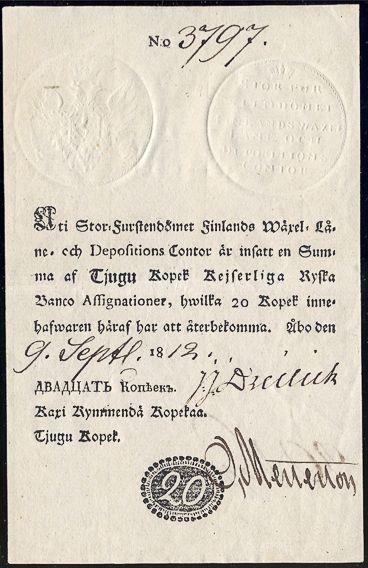 No 3797.
STOR FUR
STENDÖMET
FINLANDS WÄXEL
LÅNE OCH
DEPOSITIONS
CONTOR
Uti Stor-Furstendömet Finlands Wäxel- Lå-
ne- och Depositions Contor är insatt en Sum-
ma af Tjugu Kopek Kejserliga Ryska
Banco Assignationer, hwilka 20 Kopek inne-
hafwaren häraf har att återbekomma. Åbo den
9. Septl. 1812.
ДВАДЦАТЬ Копѣекъ.
Kaxi Kynmendä Kopekaa.
Tjugu Kopek.
20